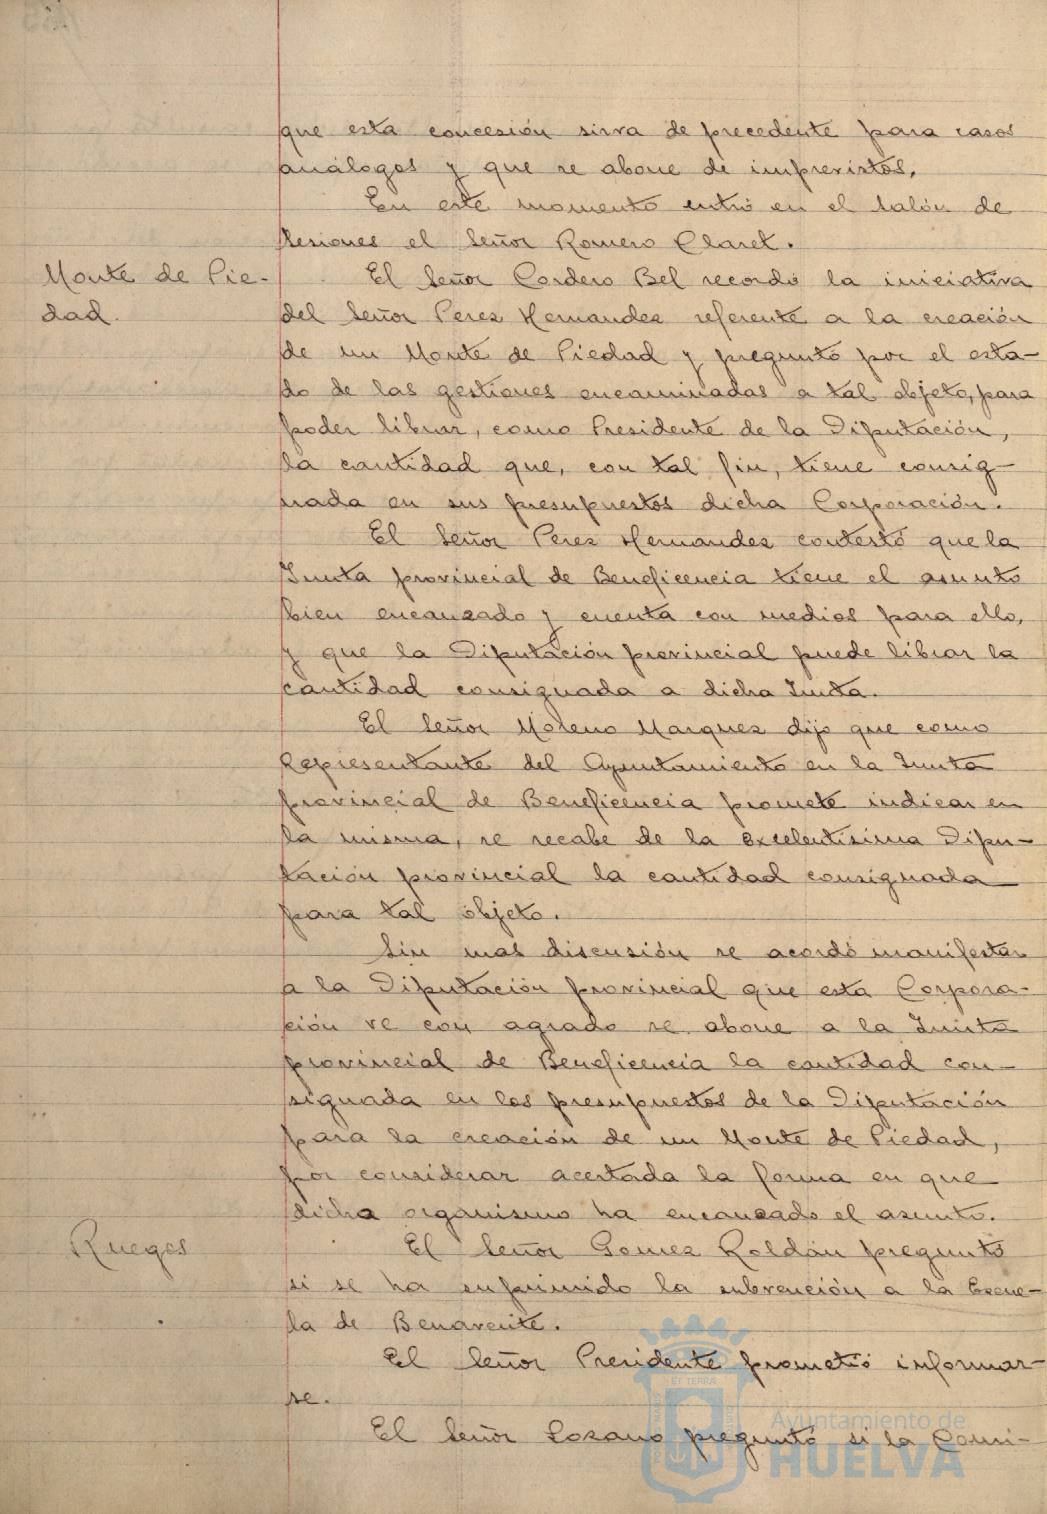 que esta concesión sirva de precedente para casos
análogos y que se abone de imprevistos.
En este momento entró en el salón de
sesiones el Señor Romero Claret.
Monte de Pie-
dad.
El Señor Cordero Bel recordó la iniciativa
del Señor Perez Hernandez referente a la creación
de un Monte de Piedad y preguntó por el esta-
do de las gestiones encaminadas a tal objeto, para
poder librar, como Presidente de la Diputación,
la cantidad que, con tal fin, tiene consig-
nada en sus presupuestos dicha Corporación.
El Señor Perez Hernandez contestó que la
Junta provincial de Beneficencia tiene el asunto
bien encauzado y cuenta con medios para ello,
y que la Diputación provincial puede librar la
cantidad consignada a dicha Junta.
El Señor Moreno Marquez dijo que como
Representante del Ayuntamiento en la Junta
provincial de Beneficencia promete indicar en
la misma, se recabe de la Excelentísima Dipu-
tación provincial la cantidad consignada
para tal objeto.
Sin mas discusión se acordó manifestar
a la Diputación provincial que esta Corpora-
ción ve con agrado se abone a la Junta
provincial de Beneficencia la cantidad con-
signada en los presupuestos de la Diputación
para la creación de un Monte de Piedad,
por considerar acertada la forma en que
dicho organismo ha encauzado el asunto.
Ruegos
El Señor Gomez Roldán preguntó
si se ha suprimido la subvención a la Escue-
la de Benavente.
El Señor Presidente prometió informar-
se.
El Señor Lozano preguntó si la Comi-
Ayuntamiento de
HUELVA